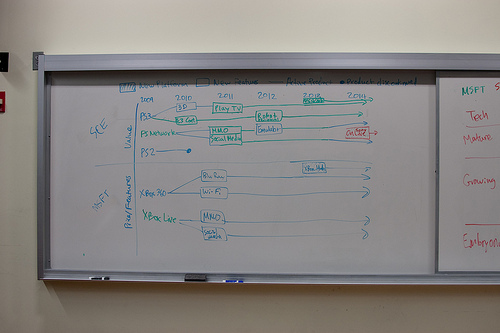 New Platform New Feature Active Product Product discontinued
2009 2010 2011 2012 2013 2014
3D
Play TV
PS3
Robot
PS Network
MMO
Emulator
Social Media
OnLIVE
PS2
SCE
Value
MSFT
Price/Features
Blu Ray
XBox 360
Wi-Fi
XBox Live
MMO
Social Media
MSFT
Tech
Mature
Growing
Embryon